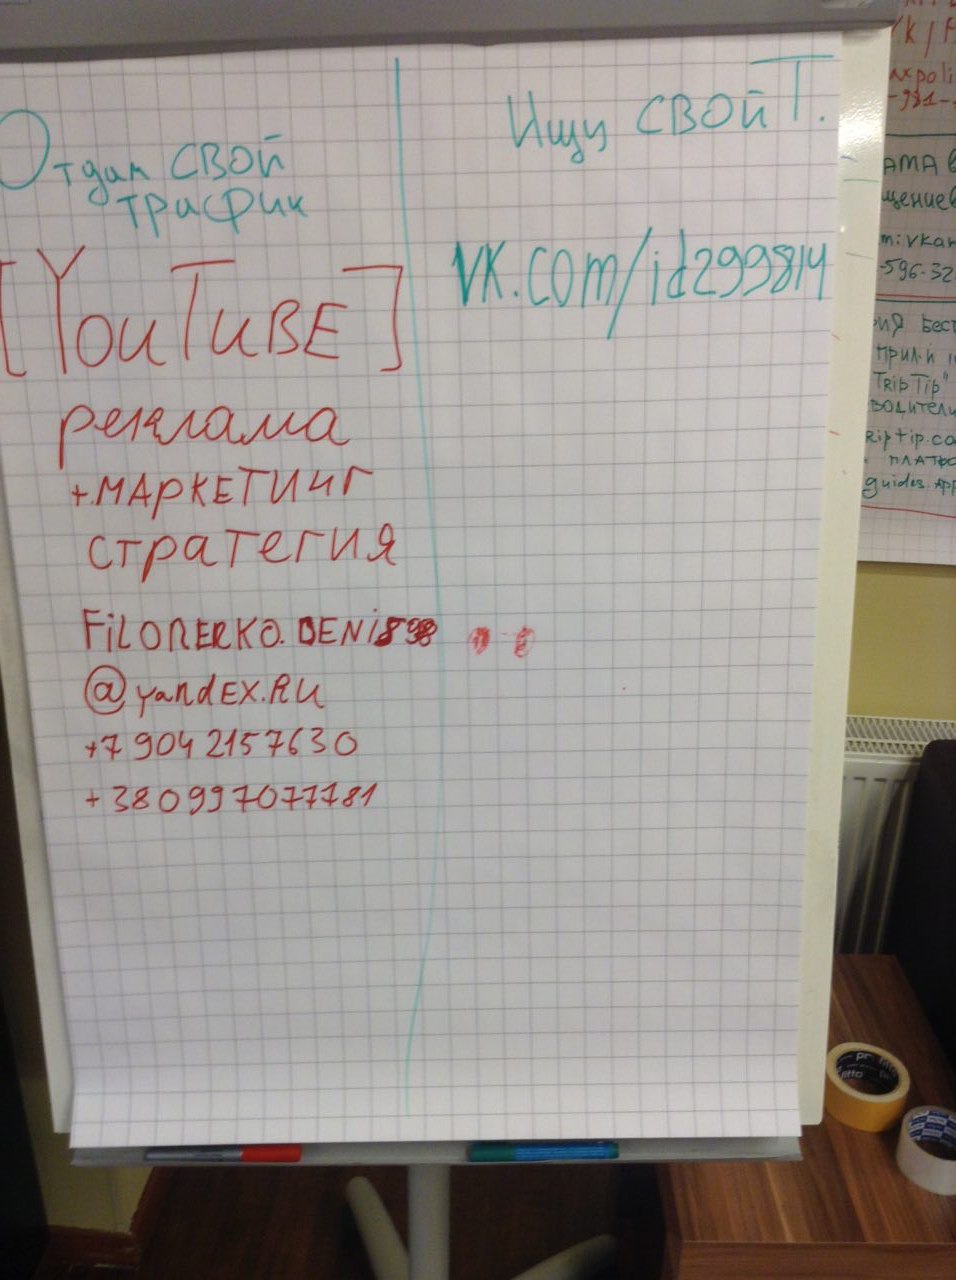 Отдам СВОЙ
трафик
[YouTuBE]
реклама
+МАРКЕТИНГ
стратегия
@yandEX.RU
+7 904 2157630
+380997077781
Ищу СВОЙ Т.
VK.com/id299814
АМА
щениев
-596-32
Бест
ПРИЛ-Й
TripTip"
водители
riptip.co
ПЛАТЬ
guides.App